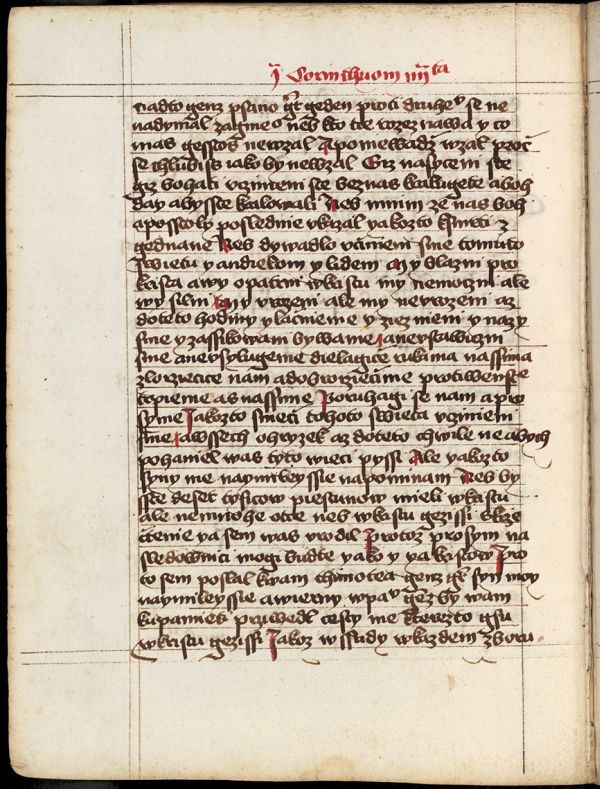 j Corinthuom iiijta
nadto genz psano gt geden proti druhe se ne
nadymal zagme neb kto tie rozeznawa y co
mas gessto newzal A pomewadz wzal proc
se chlubiss iako by newzal Giz nasyceni ste
giz bohati vcinieni ste bez nas kralugete a boh
day abysste kralowali Neb mnim ze nas boh
apossstoly poslednie vkazal yakozto k smrti z
gednane Neb dywadlo vcinieni sme tomuto
swietu y andielom y lidem my blazni pro
krista a wy opatrni w kristu my nemoczni ale
wy silni wy vrozeni ale my nevrozeni az
do teto hodiny y lacnieme y zieznieme y nazy
sme y zassigkowani bywame a nevstawiczni
sme a nevsylugeme dielagice rukama nassima
zlorziecie nam a dobrorziecime protiwenstwie
trpieme a snassime Poruhagi se nam a pro
syme Jakozto smeti tohoto swieta vcinieni
sme a wssech ohryzek az do teto chwile ne abych
pohaniel was tyto wieci pyssi Ale yakozto
syny me naymileyssie napominam Neb by
sste deset tysicow piestunow mieli w kristu
ale ne mnohe otce neb w kristu gezissi skrze
cztenie ya sem was vrodil Protoz prosym na
sledownici mogi budte yako y ya kristow Pro
to sem poslal k wam thimotea genz gt syn moy
naymileyssie a wierny w pa genz by wam
ku pamieti prziwedl cesty me kterezto gsu
w kristu gezissi Jakoz wssudy w kazdem zboru